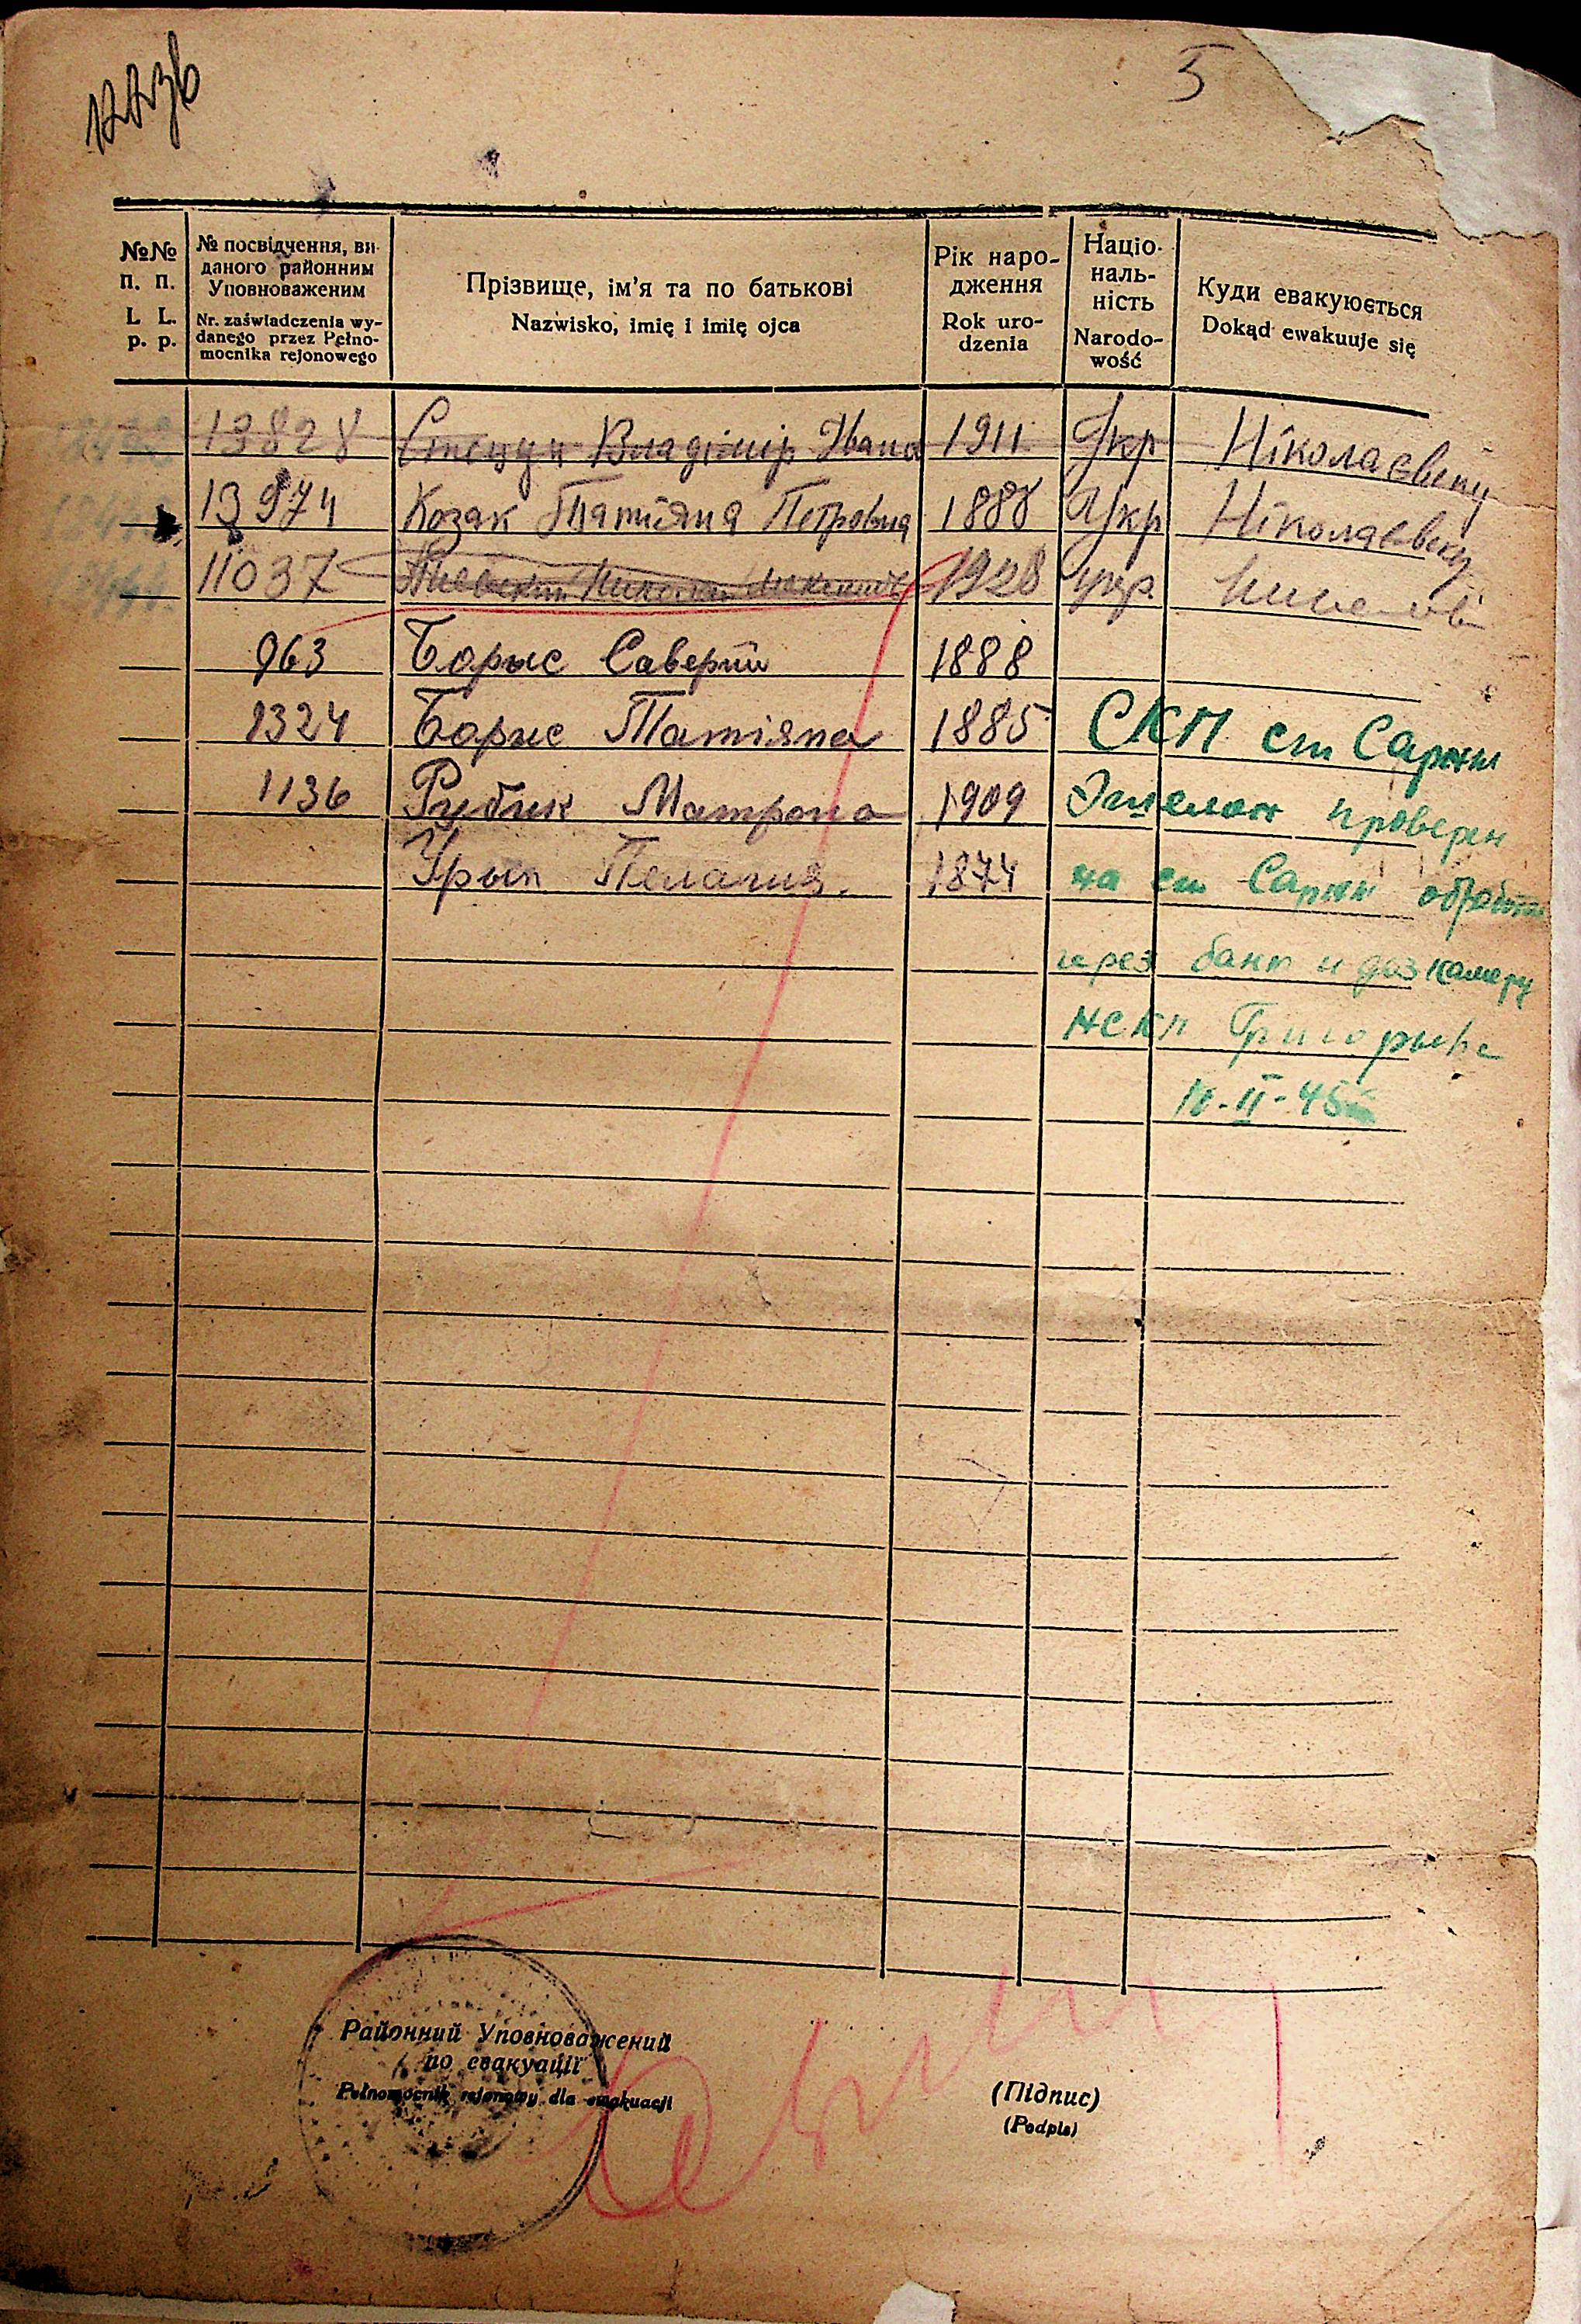 5
№№ п. п.
L. L. p. p.
№ посвідчення, ви-
даного районним
Уповноваженим
Nr. zaświadczenia wy-
danego przez Pełno-
mocnika rejonowego
Прізвище, ім’я та по батькові
Nazwisko, imię i imię ojca
Рік наро-
дження
Rok uro-
dzenia
Націо-
наль-
ність
Narodo-
wość
Куди евакуюється
Dokąd ewakuuje się
13828 Владімір Івано 1911 Укр
13974 Козак Татіяна Петровна 1888 Укр
11037 1928 укр.
963 Борис Саверій 1888
1324 Борис Татіяна 1885 СКП ст Сарны
1136 Рубик Матрона 1909 Эшелон проверен
Пелагия. 1874 на ст Сарны
через банп и дезкамеру
НСКП
II-45
Районний Уповноважений
по евакуації
Pełnomocnik rejonowy dla ewakuacji
(Підпис)
(Podpis)